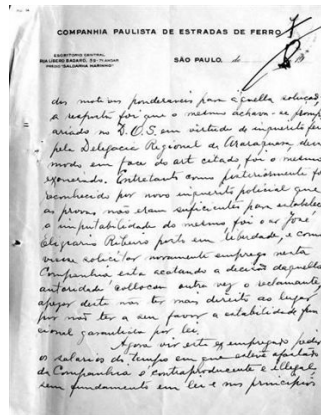 COMPANHIA PAULISTA DE ESTRADAS DE FERRO
ESCRIPTORIO CENTRAL
RUA LIBERO BADARÓ, 39 - 7º ANDAR
PREDIO "SALDANHA MARINHO"
SÃO PAULO, de
dos motivos ponderaveis para aquella solução,
a resposta foi que o mesmo achava-se
no D.O.S. em virtude do inquerito feito
pela Delegacia Regional de Araraquara, deste
modo em face do art citado foi o mesmo
exonerado. Entretanto como posteriormente foi
reconhecido por novo inquerito policial que
as provas não eram sufficientes para estabelecer
a imputabilidade do mesmo foi o sr José
Ribeiro posto em liberdade, e como
viesse solicitar novamente emprego nesta
Companhia esta acatando a decisão daquella
autoridade collocou outra vez o reclamante
apezar deste não ter mais direito ao lugar,
por não ter a seu favor a estabilidade fun
cional garantida por lei.
Agora vir este ex empregado pedir
os salarios do tempo em que esteve afastado
da Companhia é contraproducente e illegal,
sem fundamento em lei e nos principios